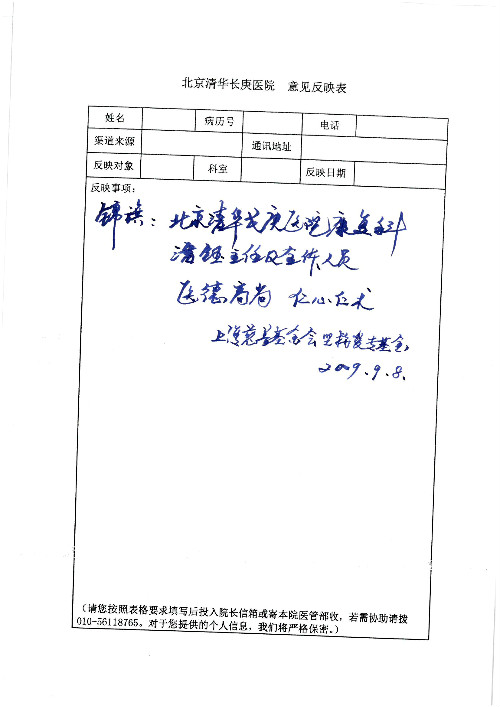 北京清华长庚医院 意见反映表
姓名 病历号 电话
渠道来源 通讯地址
反映对象 科室 反映日期
反映事项:
锦旗：北京清华长庚医院康复科
主任及全体人员
医德高尚 仁心仁术
上海慈善基金会 专基金
2009.9.8.
(请您按照表格要求填写后投入院长信箱或寄本院医管部收，若需协助请拨
010-56118765。对于您提供的个人信息，我们将严格保密。)